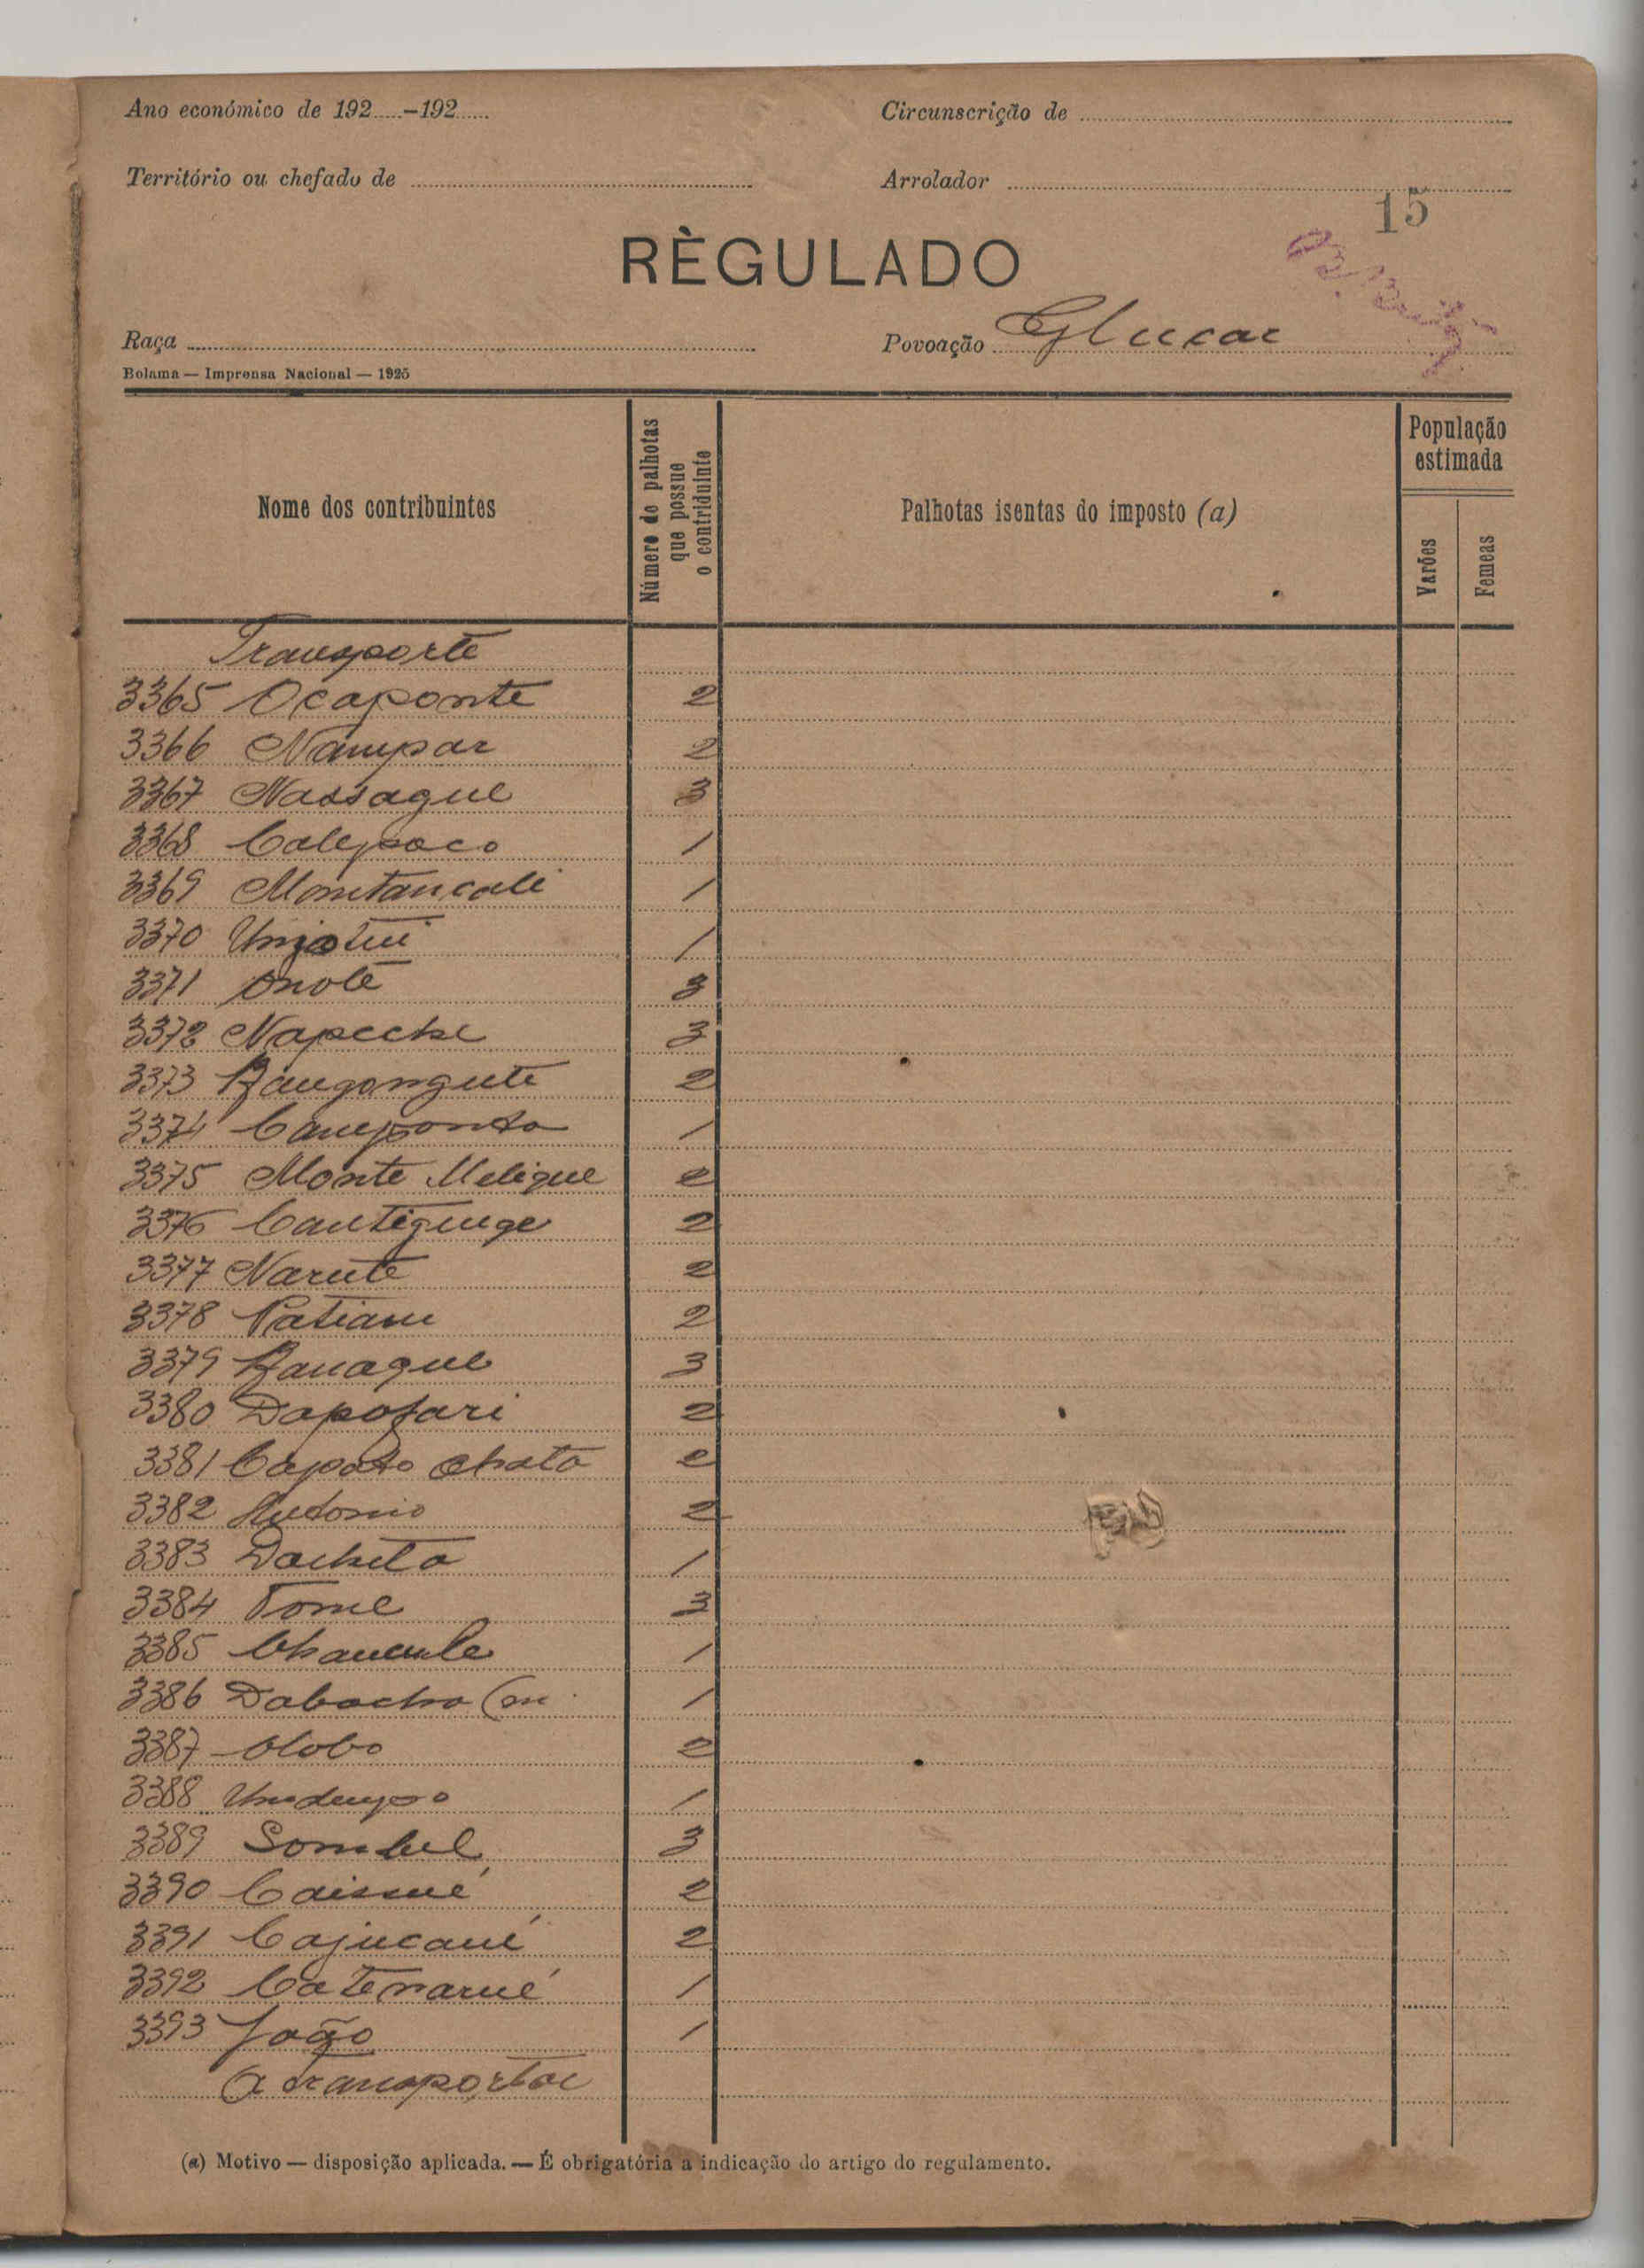 Ano económico de 192.....-192.....
Circunscrição de
Território ou chefado de
Arrolador
15
RÈGULADO
Raça
Povoação Glucar
Bolama — Imprensa Nacional — 1925
Nome dos contribuintes
Número de palhotas que possue o contriduinte
Palhotas isentas do imposto (a)
População estimada
Varões
Femeas
Transporte
3365 Ocaponte 2
3366 Nampar 2
3367 Nassague 3
3368 Calepaco 1
3369 Montancali 1
3370 1
3371 Onote 3
3372 Napeche 3
3373 2
3374 Camponto 1
3375 Monte Melique 2
3376 Cantigunge 2
3377 Narute 2
3378 Natiam 2
3379 3
3380 Dapofari 2
3381 Capato Chato 2
3382 Antonio 2
3383 Dacheto 1
3384 Tome 3
3385 1
3386 Dabacho 1
3387 Olobo 2
3388 1
3389 Sombel 3
3390 2
3391 Cajucaué 2
3392 Catenarué 1
3393 João 1
A transportar
(a) Motivo — disposição aplicada. — É obrigatória a indicação do artigo do regulamento.